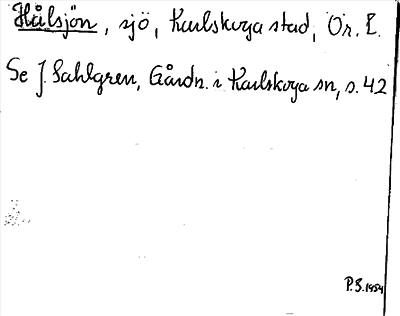 Hålsjön, sjö, Karlskoga stad, Ör. L.
Se J. Sahlgren, Gårdn. i Karlskoga sn, s. 42
P.S. 1954